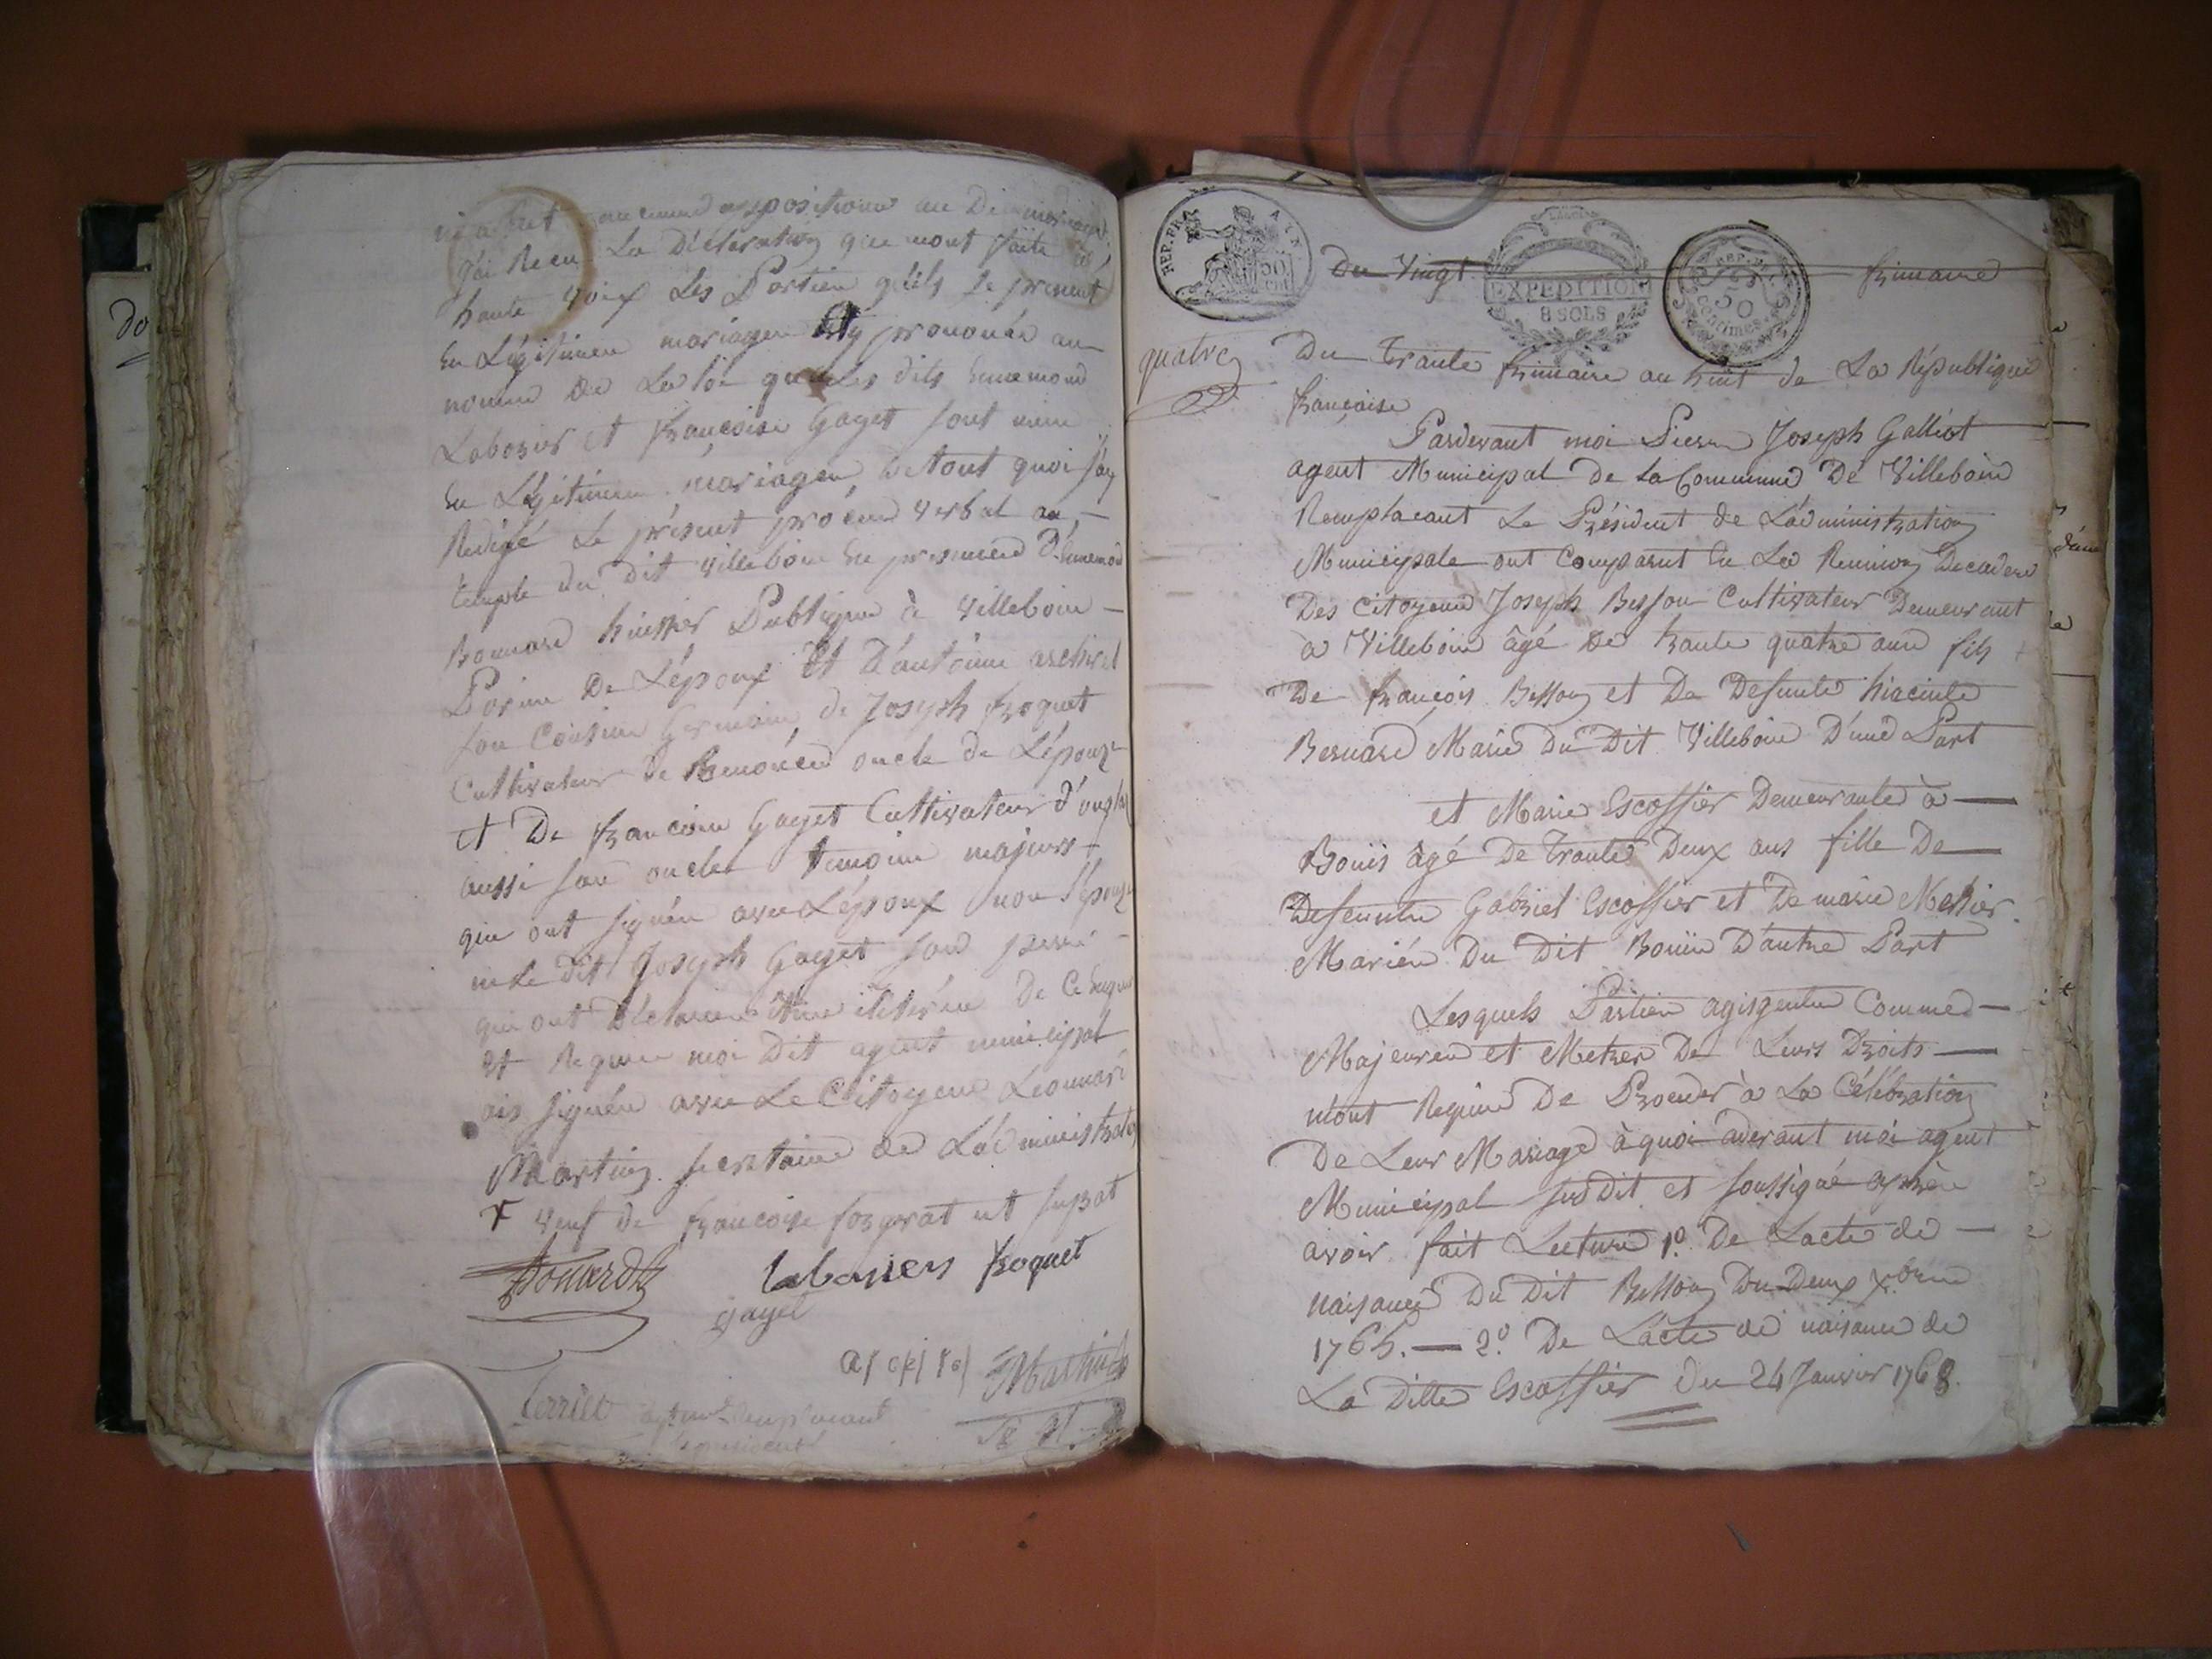 ni a fait aucune oppositions au Dit mariage
J'ai Recu La Déclaration que mont faite à
haute voix Les Partien qu'ils se prenent
En Légitimen mariagen Ety prononcée au
nomme De La loi que Les dits Ennemond
Laborier et françoise Gayet sont unie
En Légitimen mariagen, de tout quoi j'ay
Redigé Le présent procéen verbal au —
temple du dit villeboin En presence D'Ennemond
Bonnard huissier Publique à Villeboin —
Parin De L'époux Et D'antoine
son Cousin Germain de Joseph froquet
Cultivateur De oncle de L'épouze
et De françoin Gayet Cultivateur
aussi son oncle temoins majeurs
qui ont signén avec L'époux non l'épouze
ni Le dit Joseph Gayet son père
qui ont Déclaren être ilitérée De Ce Enquis
Et Requin moi Dit agent municipal
ais signén avec Le Citoyen Léonnard
Martin secretaire de L'administration
x veuf de francoise forgerat ut suprat
Bonnard laboriers froquet
gayet
Martin
agent remplacant
le president
REP. FRA 50 cent
EXPEDITION
8 SOLS
REP. FRA. 50 centimes
du Vingt frimaire
quatre
Du Trante frimaire an huit de La République
françoise
Pardevant moi Pierre Joseph Galliot
agent Municipal De La Commune De Villeboin
Remplacant Le Président de L'administration
Municipale ont Comparut En La Reunion Decadere
Des Citoyens Joseph Besson Cultivateur Demeurant
à Villeboin âgé De trante quatre ans fils
De françois Besson et De Defunte hiacinte
Bernard Marié Du Dit Villeboin D'une Part
et Marie Escoffier Demeurante à —
Bouis âgé De Trante Deux ans fille De —
Defunte Gabriel Escoffier et De marie Mettier
Mariée Du Dit Bouin D'autre Part
Lesquels Partien agisgentes Comme —
Majeuren et Metres De Leurs Droits —
mont Requin De Proceder à La Célébration
De Leur Mariage à quoi aderant moi agent
Municipal susdit et soussigné après
avoir fait Lecture 1.º De Lacte de —
naisance Du Dit Besson Du Deux xbre
1765. — 2.º De Lacte de naisance de
La Ditte Escoffier du 24 Janvier 1768.